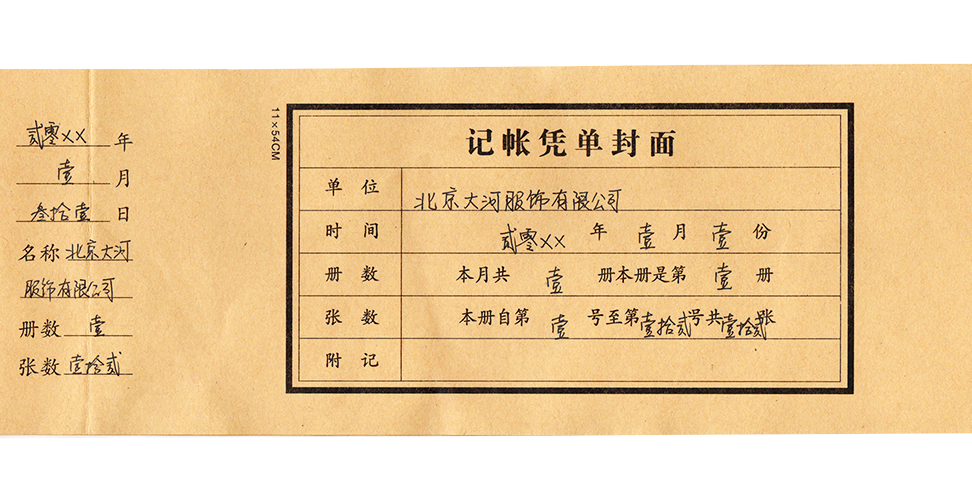 贰零××年
壹月
叁拾壹日
名称北京大河
服饰有限公司
册数壹
张数壹拾贰
11×54CM
记帐凭单封面
单位 北京大河服饰有限公司
时间 贰零××年壹月壹份
册数 本月共壹册本册是第壹册
张数 本册自第壹号至第壹拾贰号共壹拾贰张
附记